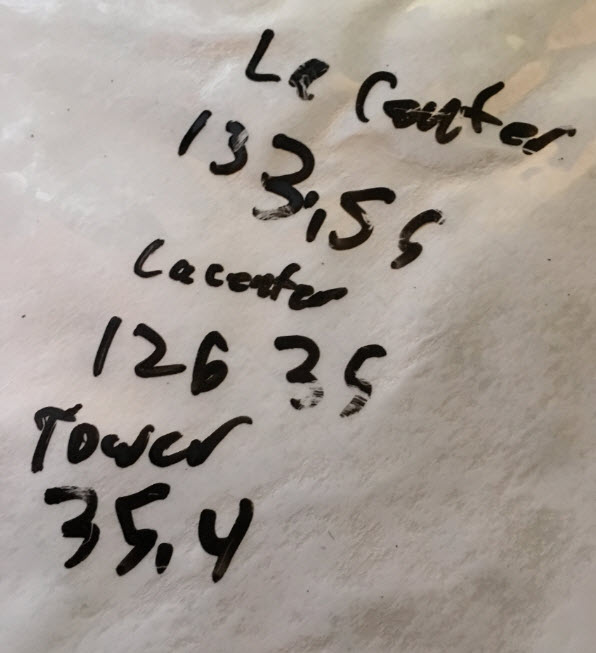 La Center
133,55
Lacenter
126 35
Tower
35,4